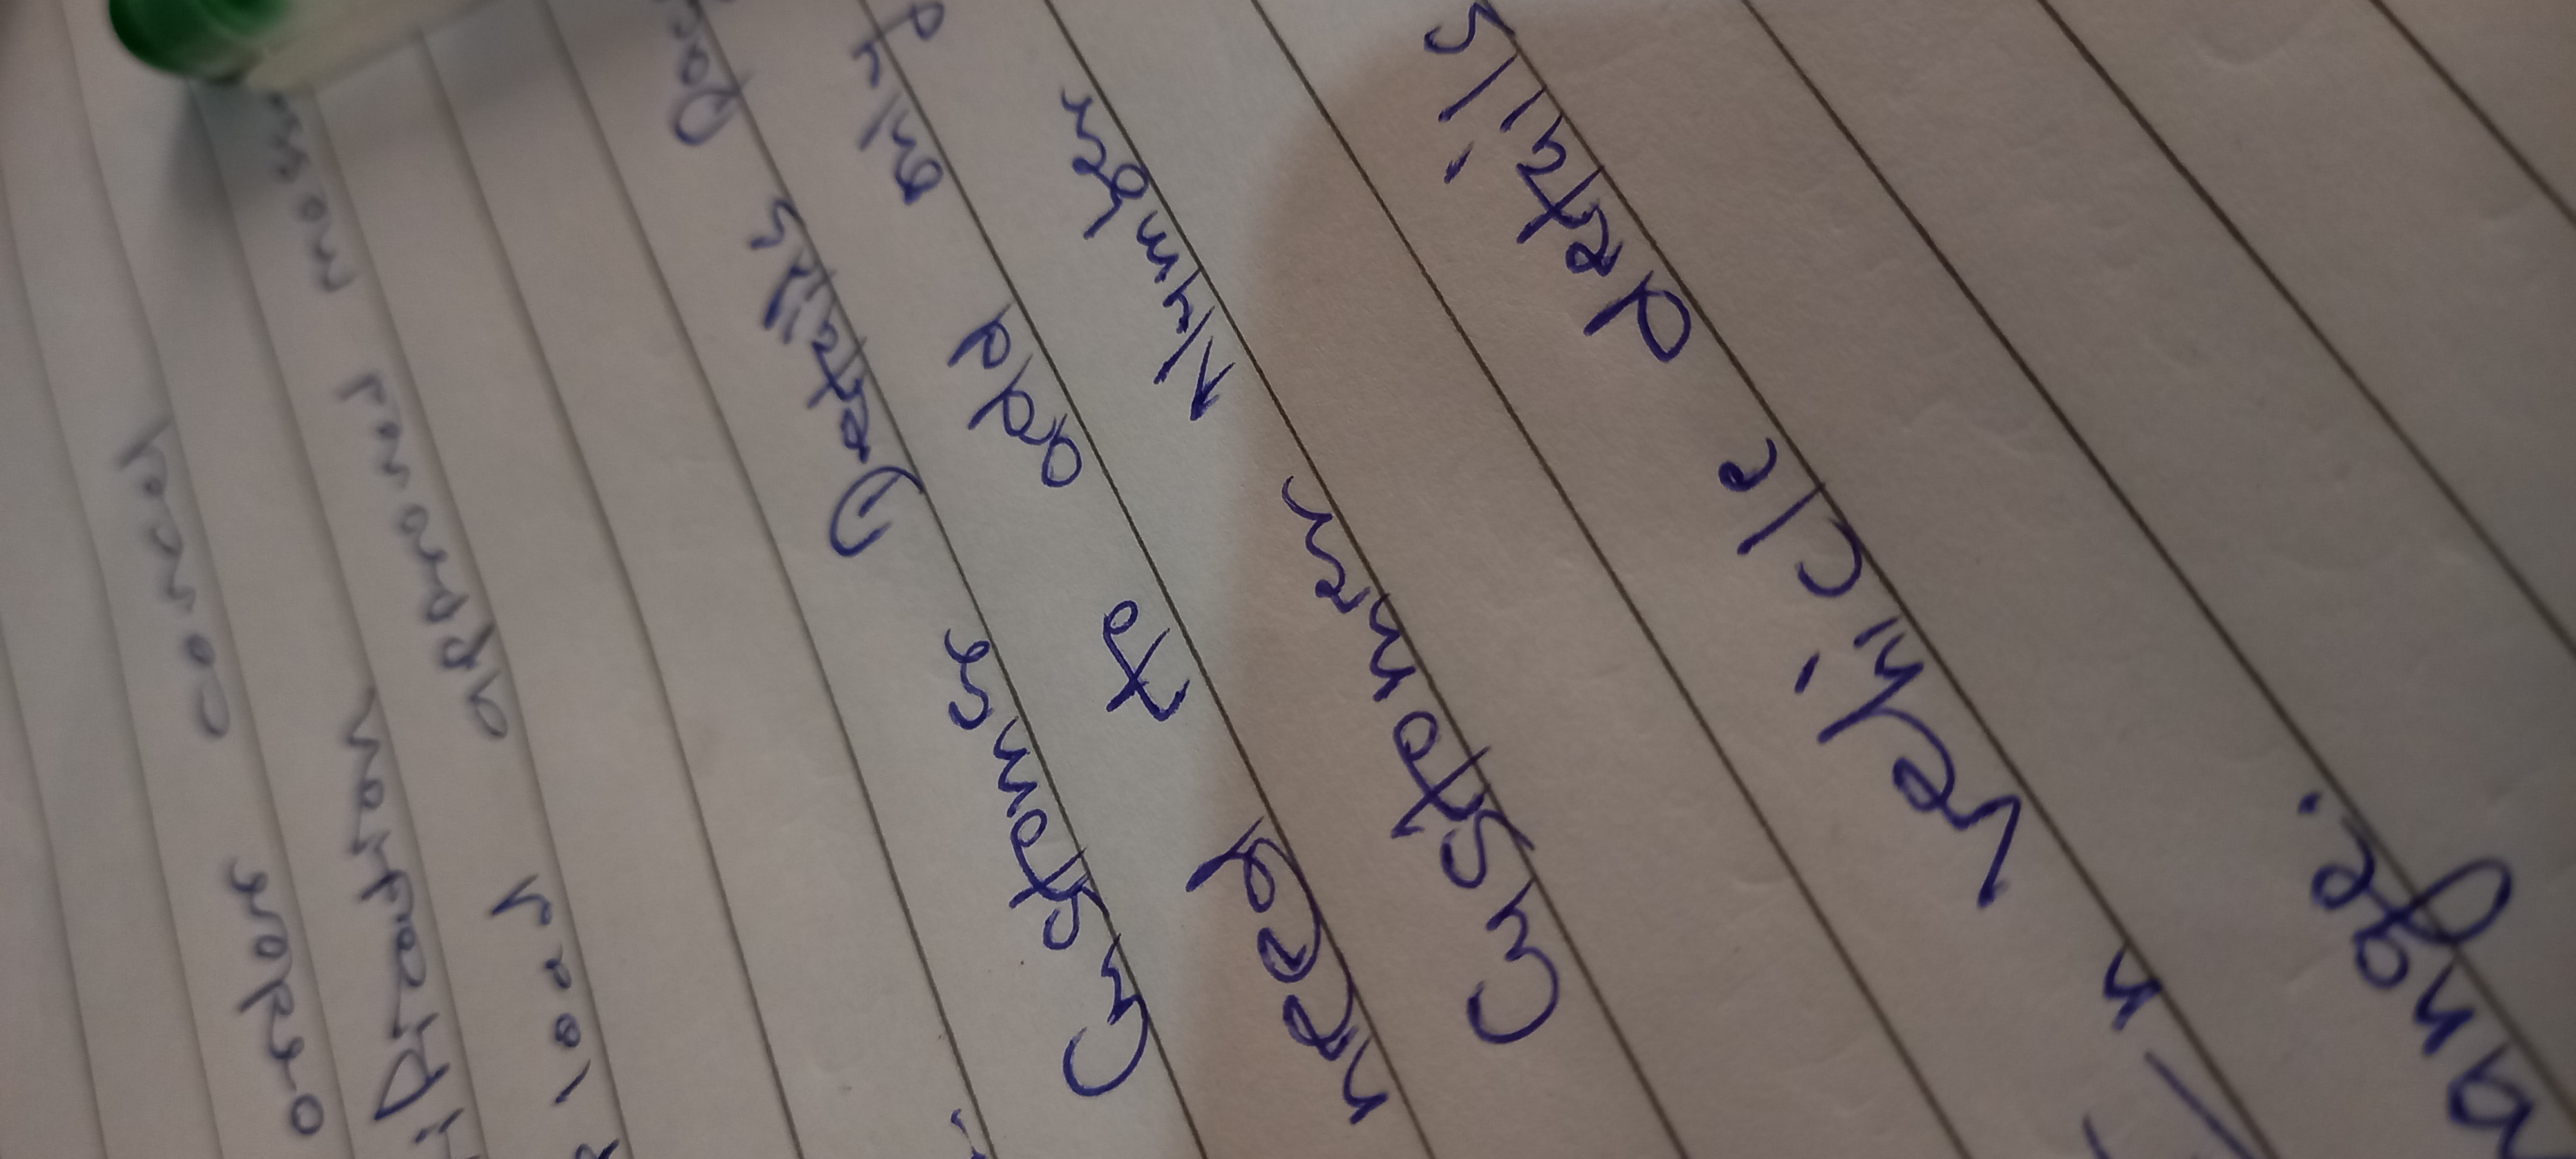 order cancel
ification
load approved
Customer Details
need to add only
Customer Number
In vehicle details
ange.